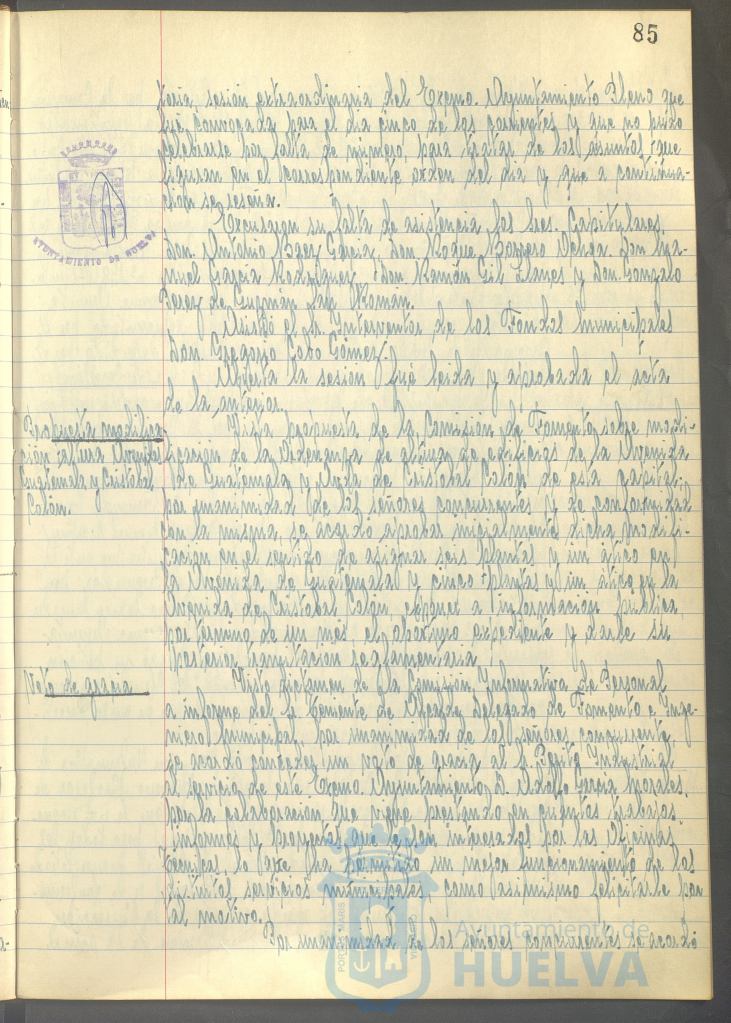 85
toria, sesión extraordinaria del Excmo. Ayuntamiento Pleno que
fué convocada para el dia cinco de los corrientes y que no pudo
celebrarse por falta de número, para tratar de los asuntos que
figuran en el correspondiente orden del dia y que a continua-
ción se reseña.
Excusaron su falta de asistencia los Sres. Capitulares,
Don Antonio Baez Garcia, Don Roque Borrero Don Ma-
nuel Garcia Rodriguez, Don Ramón Gil Llanes y Don Gonzalo
Perez de Guzmán San Román.
Asistió el Sr. Interventor de los Fondos Municipales
Don Gregorio Cobo Gómez.
Abierta la sesión fué leida y aprobada el acta
de la anterior.
Propuesta modifica-
ción altura Avenidas
Guatemala y Cristobal
Colón.
Vista propuesta de la Comisión de Fomento sobre modi-
ficación de la Ordenanza de altura de edificios de la Avenida
de Guatemala y Avda. de Cristobal Colón de esta capital,
por unanimidad de los señores concurrentes y de conformidad
con la misma, se acordó aprobar inicialmente dicha modifi-
cación en el sentido de asignar seis plantas y un ático en
la Avenida de Guatemala y cinco plantas y un ático en la
Avenida de Cristobal Colón, exponer a información pública,
por término de un mes, el oportuno expediente y darle su
posterior tramitación reglamentaria.
Voto de gracia
Visto dictamen de la Comisión Informativa de Personal
a informe del Sr. Teniente de Alcalde Delegado de Fomento e Inge-
niero Municipal, por unanimidad de los señores concurrentes,
se acordó conceder un voto de gracia al Sr. Perito Industrial
al servicio de este Excmo. Ayuntamiento, D. Adolfo Garcia Morales,
por la colaboración que viene prestando en cuantos trabajos,
informes y proyectos que le son interesados por las Oficinas
Tecnicas lo que ha permitido un mejor funcionamiento de los
distintos servicios municipales, como asimismo felicitarle por
tal motivo.
Por unanimidad de los señores concurrentes se acordó
AYUNTAMIENTO DE HUELVA
PORTUS MARIS
Ayuntamiento de
HUELVA